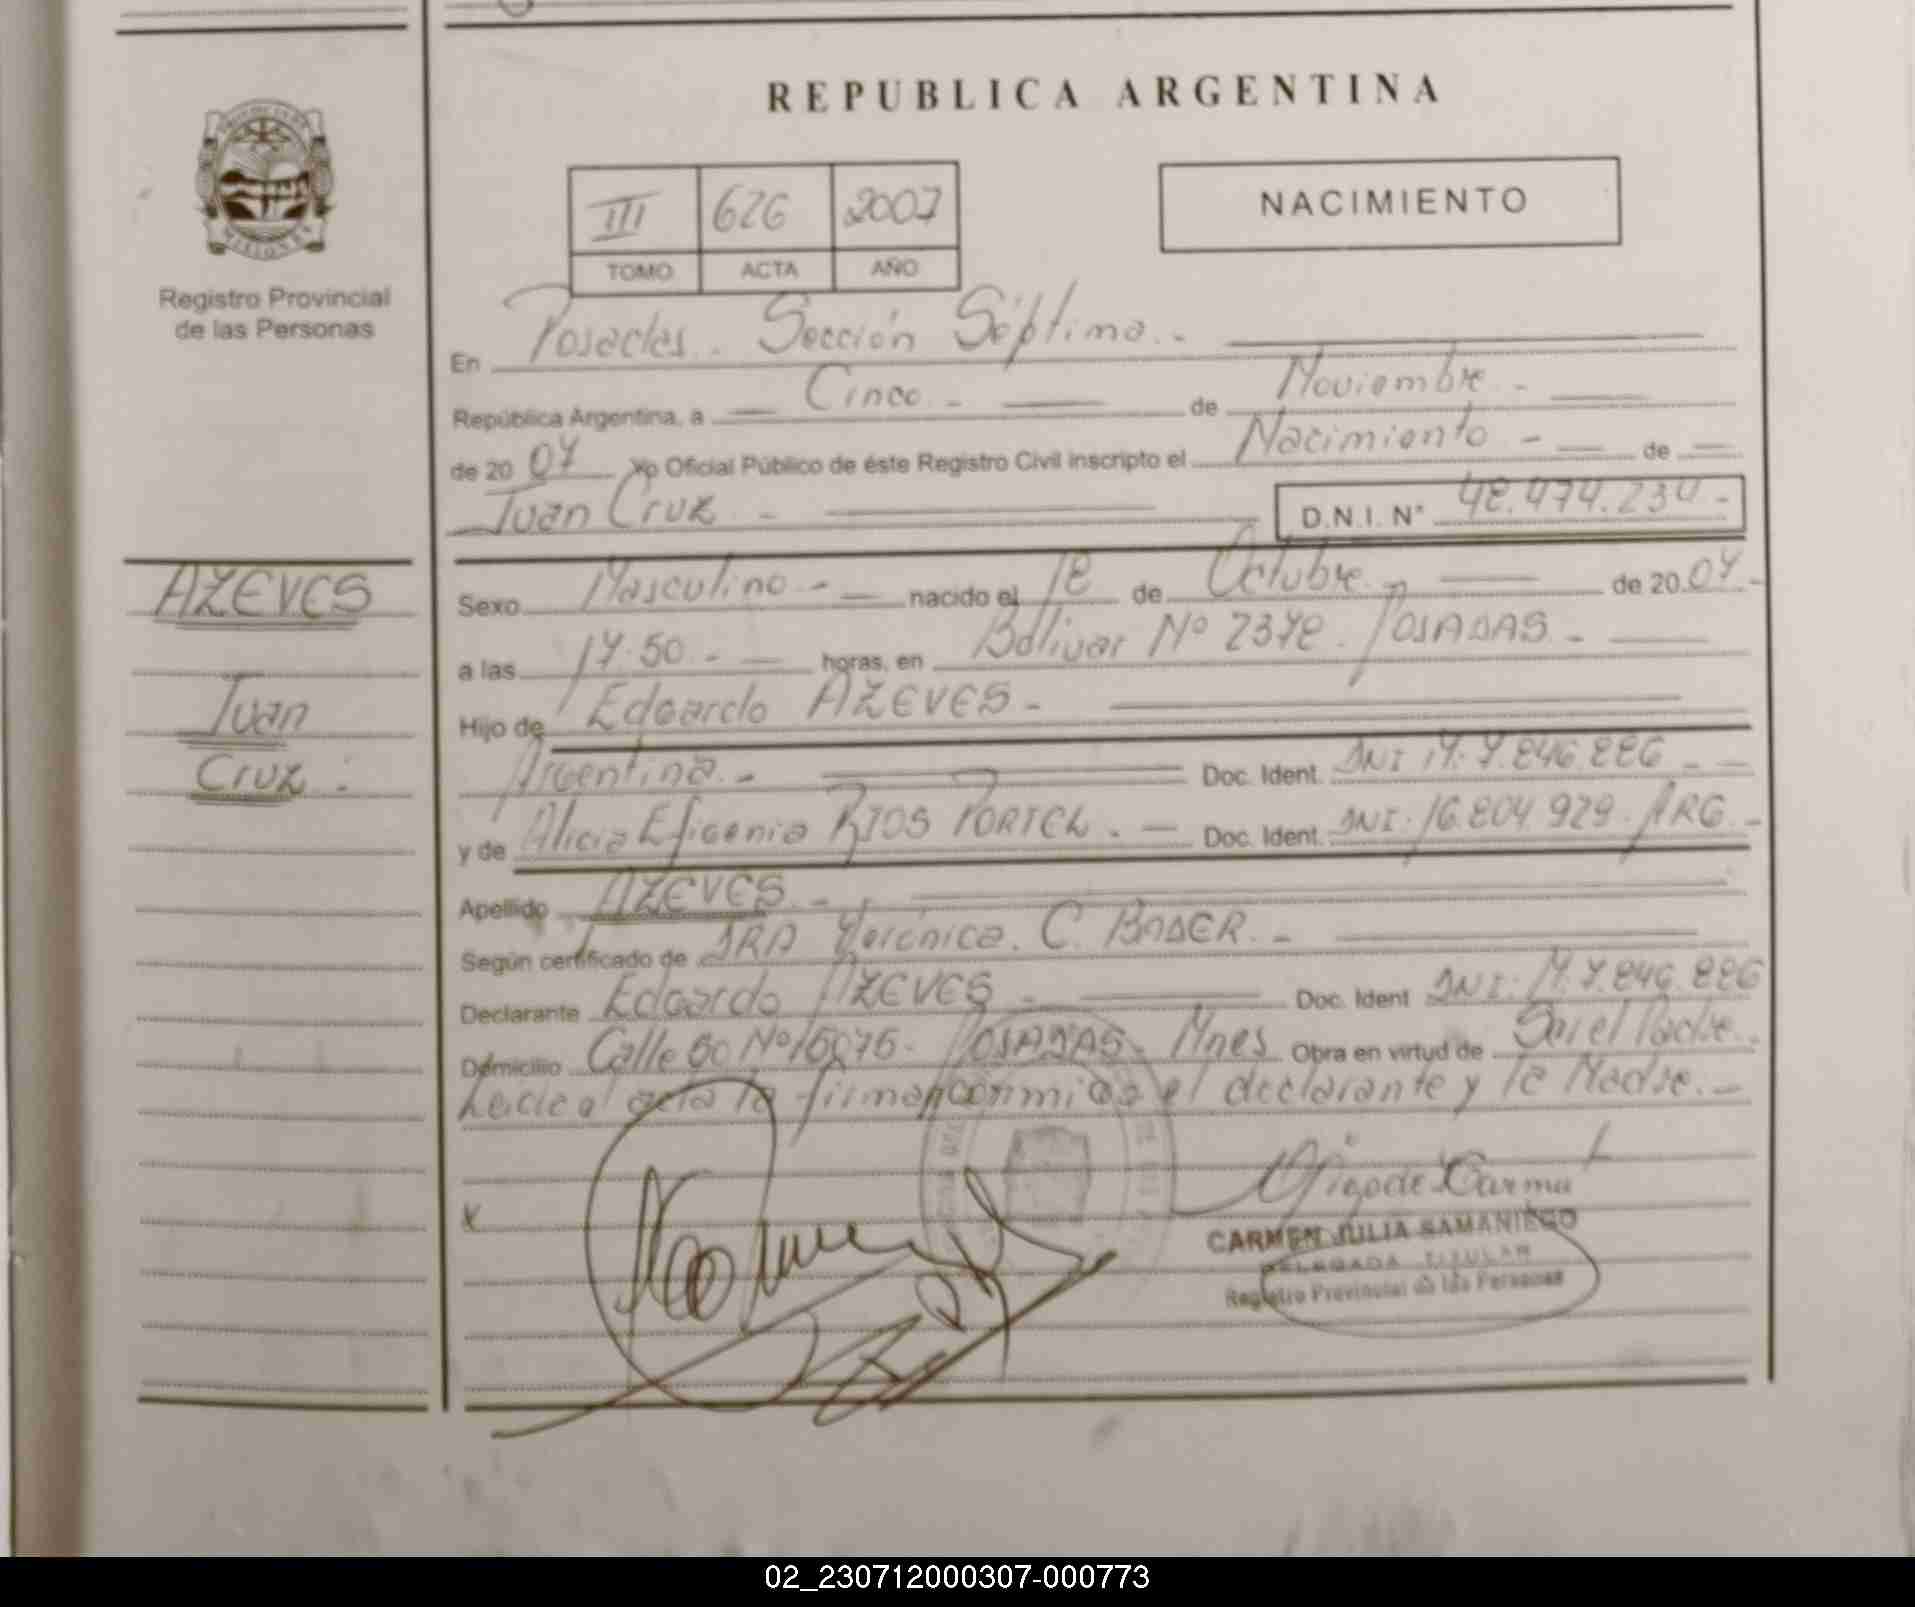 REPUBLICA ARGENTINA
III 626 2007
TOMO ACTA AÑO
NACIMIENTO
PROVINCIA DE
MISIONES
Registro Provincial
de las Personas
En Posadas. Sección Séptima.-
República Argentina, a Cinco.- de Noviembre.-
de 20 07 yo Oficial Público de éste Registro Civil inscripto el Nacimiento - de
Juan Cruz.- D.N.I. N° 48.474.234.-
AZEVES
Juan
Cruz.
Sexo Masculino.- nacido el 18 de Octubre.- de 20.07.-
a las 17.50.- horas, en Bolivar Nº 2378. POSADAS.-
Hijo de Edgardo AZEVES.-
Argentina.- Doc. Ident. DNI M. 7.846.886 -
y de Alicia Efigenia RIOS PORTEL.- Doc. Ident. DNI. 16.804.929. ARG.-
Apellido AZEVES.-
Según certificado de DRA Verónica. C. BADER.-
Declarante Edgardo AZEVES.- Doc. Ident DNI. M. 7.846.886
Domicilio Calle Nº POSADAS- Mnes Obra en virtud de Ser el Padre.-
Leida el acta la firman conmigo el declarante y la Madre.-
x
CARMEN JULIA SAMANIEGO
DELEGADA TITULAR
Registro Provincial de las Personas
02_230712000307-000773